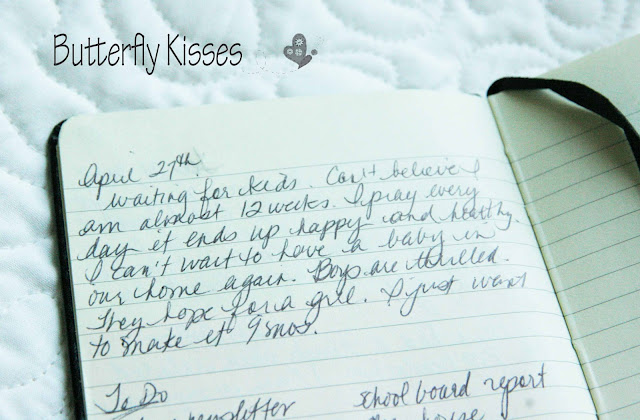 Butterfly Kisses
April 27th
waiting for kids. Can't believe I
am almost 12 weeks. I pray every
day it ends up happy and healthy.
I can't wait to have a baby in
our home again. Boys are thrilled.
They hope for a girl. I just want
to make it 9 mos.
To Do
newsletter
school board report
house